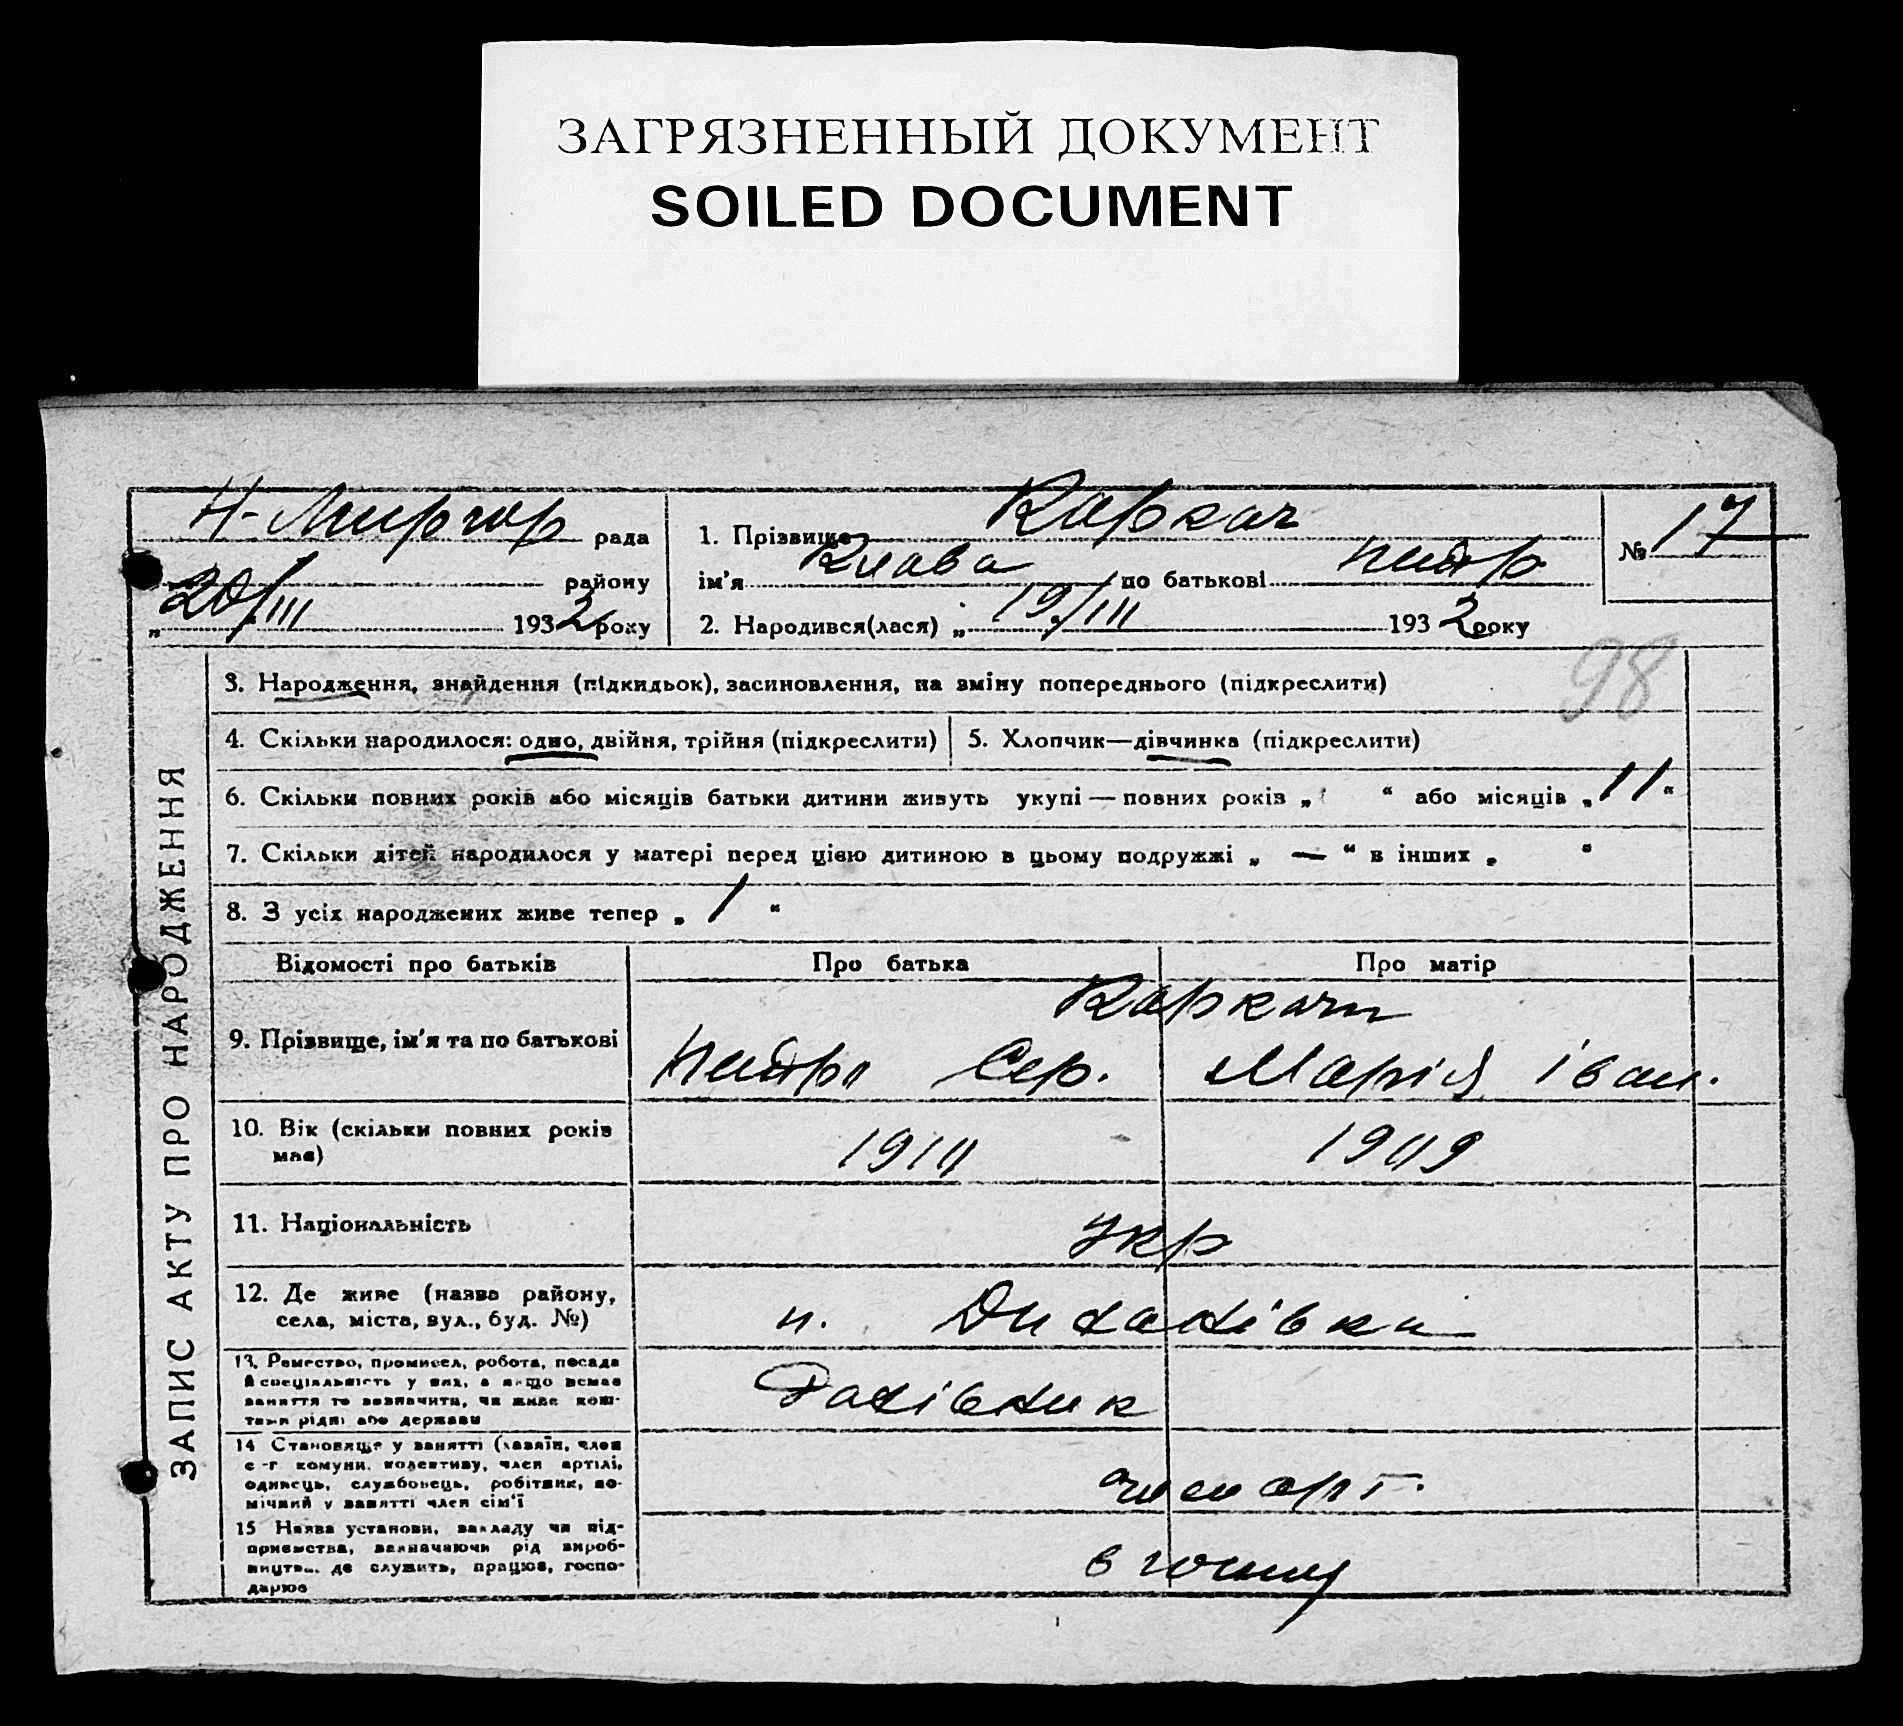 ЗАГРЯЗНЕННЫЙ ДОКУМЕНТ
SOILED DOCUMENT
Н-Миргор рада
району
„20/III 1932 року
1. Прізвище Каркач
ім'я Клава по батькові
2. Народився(лася) „ 19/III 1932 року
№ 17
98
ЗАПИС АКТУ ПРО НАРОДЖЕННЯ
3. Народження, знайдення (підкидьок), засиновлення, на зміну попереднього (підкреслити)
4. Скільки народилося: одно, двійня, трійня (підкреслити)
5. Хлопчик—дівчинка (підкреслити)
6. Скільки повних років або місяців батьки дитини живуть укупі — повних років „ “ або місяців „ 11 “
7. Скільки дітей народилося у матері перед цією дитиною в цьому подружжі „ — “ в інших „ “
8. З усіх народжених живе тепер „ 1 “
Відомості про батьків Про батька Про матір
Каркачи
9. Прізвище, ім'я та по батькові Сер. Марія Іван.
10. Вік (скільки повних років
має)
1910 1909
11. Національність Укр
12. Де живе (назва району,
села, міста, вул., буд. №)
13. Ремество, промисел, робота, посада
й спеціяльність у них, а якщо немає
заняття то зазначити, чи живе кош-
тами рідні або держави
14 Становище у занятті (хазяїн, член
с-г комуни, колективу, член артілі,
одинець, службовець, робітник, по-
мічний у занятті член сім'ї
член арт.
15 Назва установи, закладу чи під-
приємства, зазначаючи рід вироб-
ництва, де служить, працює, госпо-
дарює